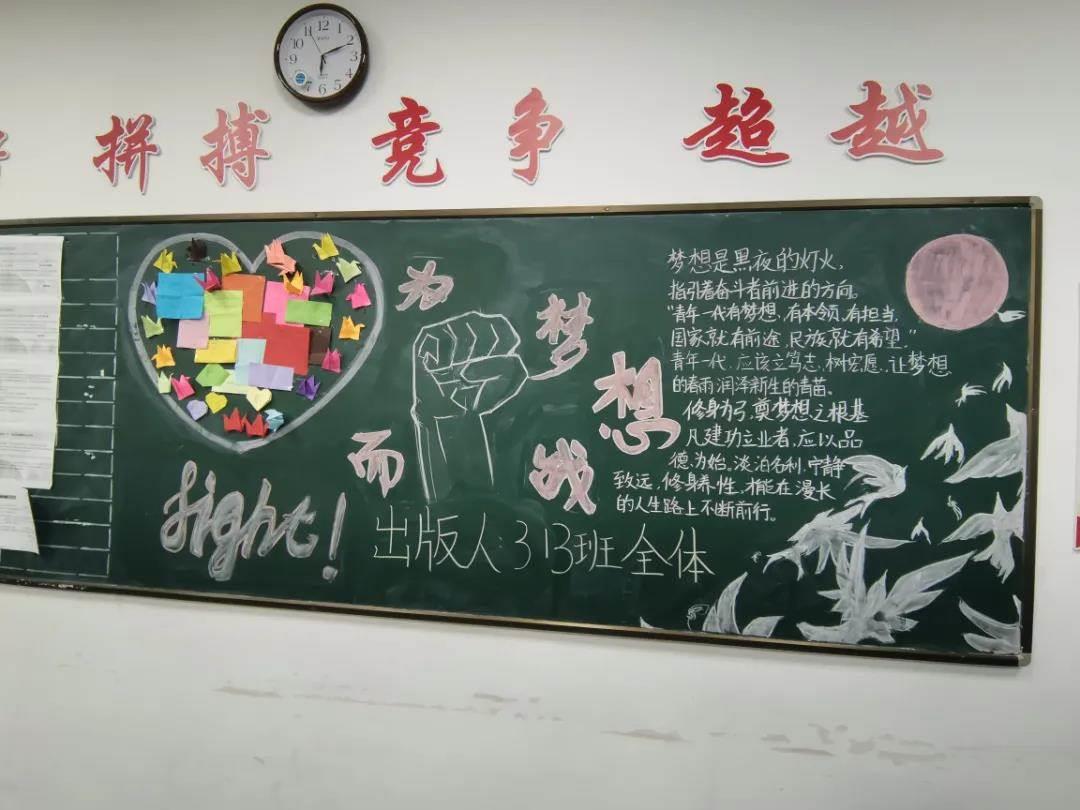 拼搏 竞争 超越
为梦想
而战
fight!
出版人:313班全体
梦想是黑夜的灯火,
指引着奋斗者前进的方向。
"青年一代有梦想,有本领,有担当,
国家就有前途,民族就有希望。"
青年一代,应该立笃志,树宏愿,让梦想
的春雨润泽新生的青苗。
修身为弓,奠梦想之根基
凡建功立业者,应以品
德为始,淡泊名利,宁静
致远,修身养性,才能在漫长
的人生路上不断前行。